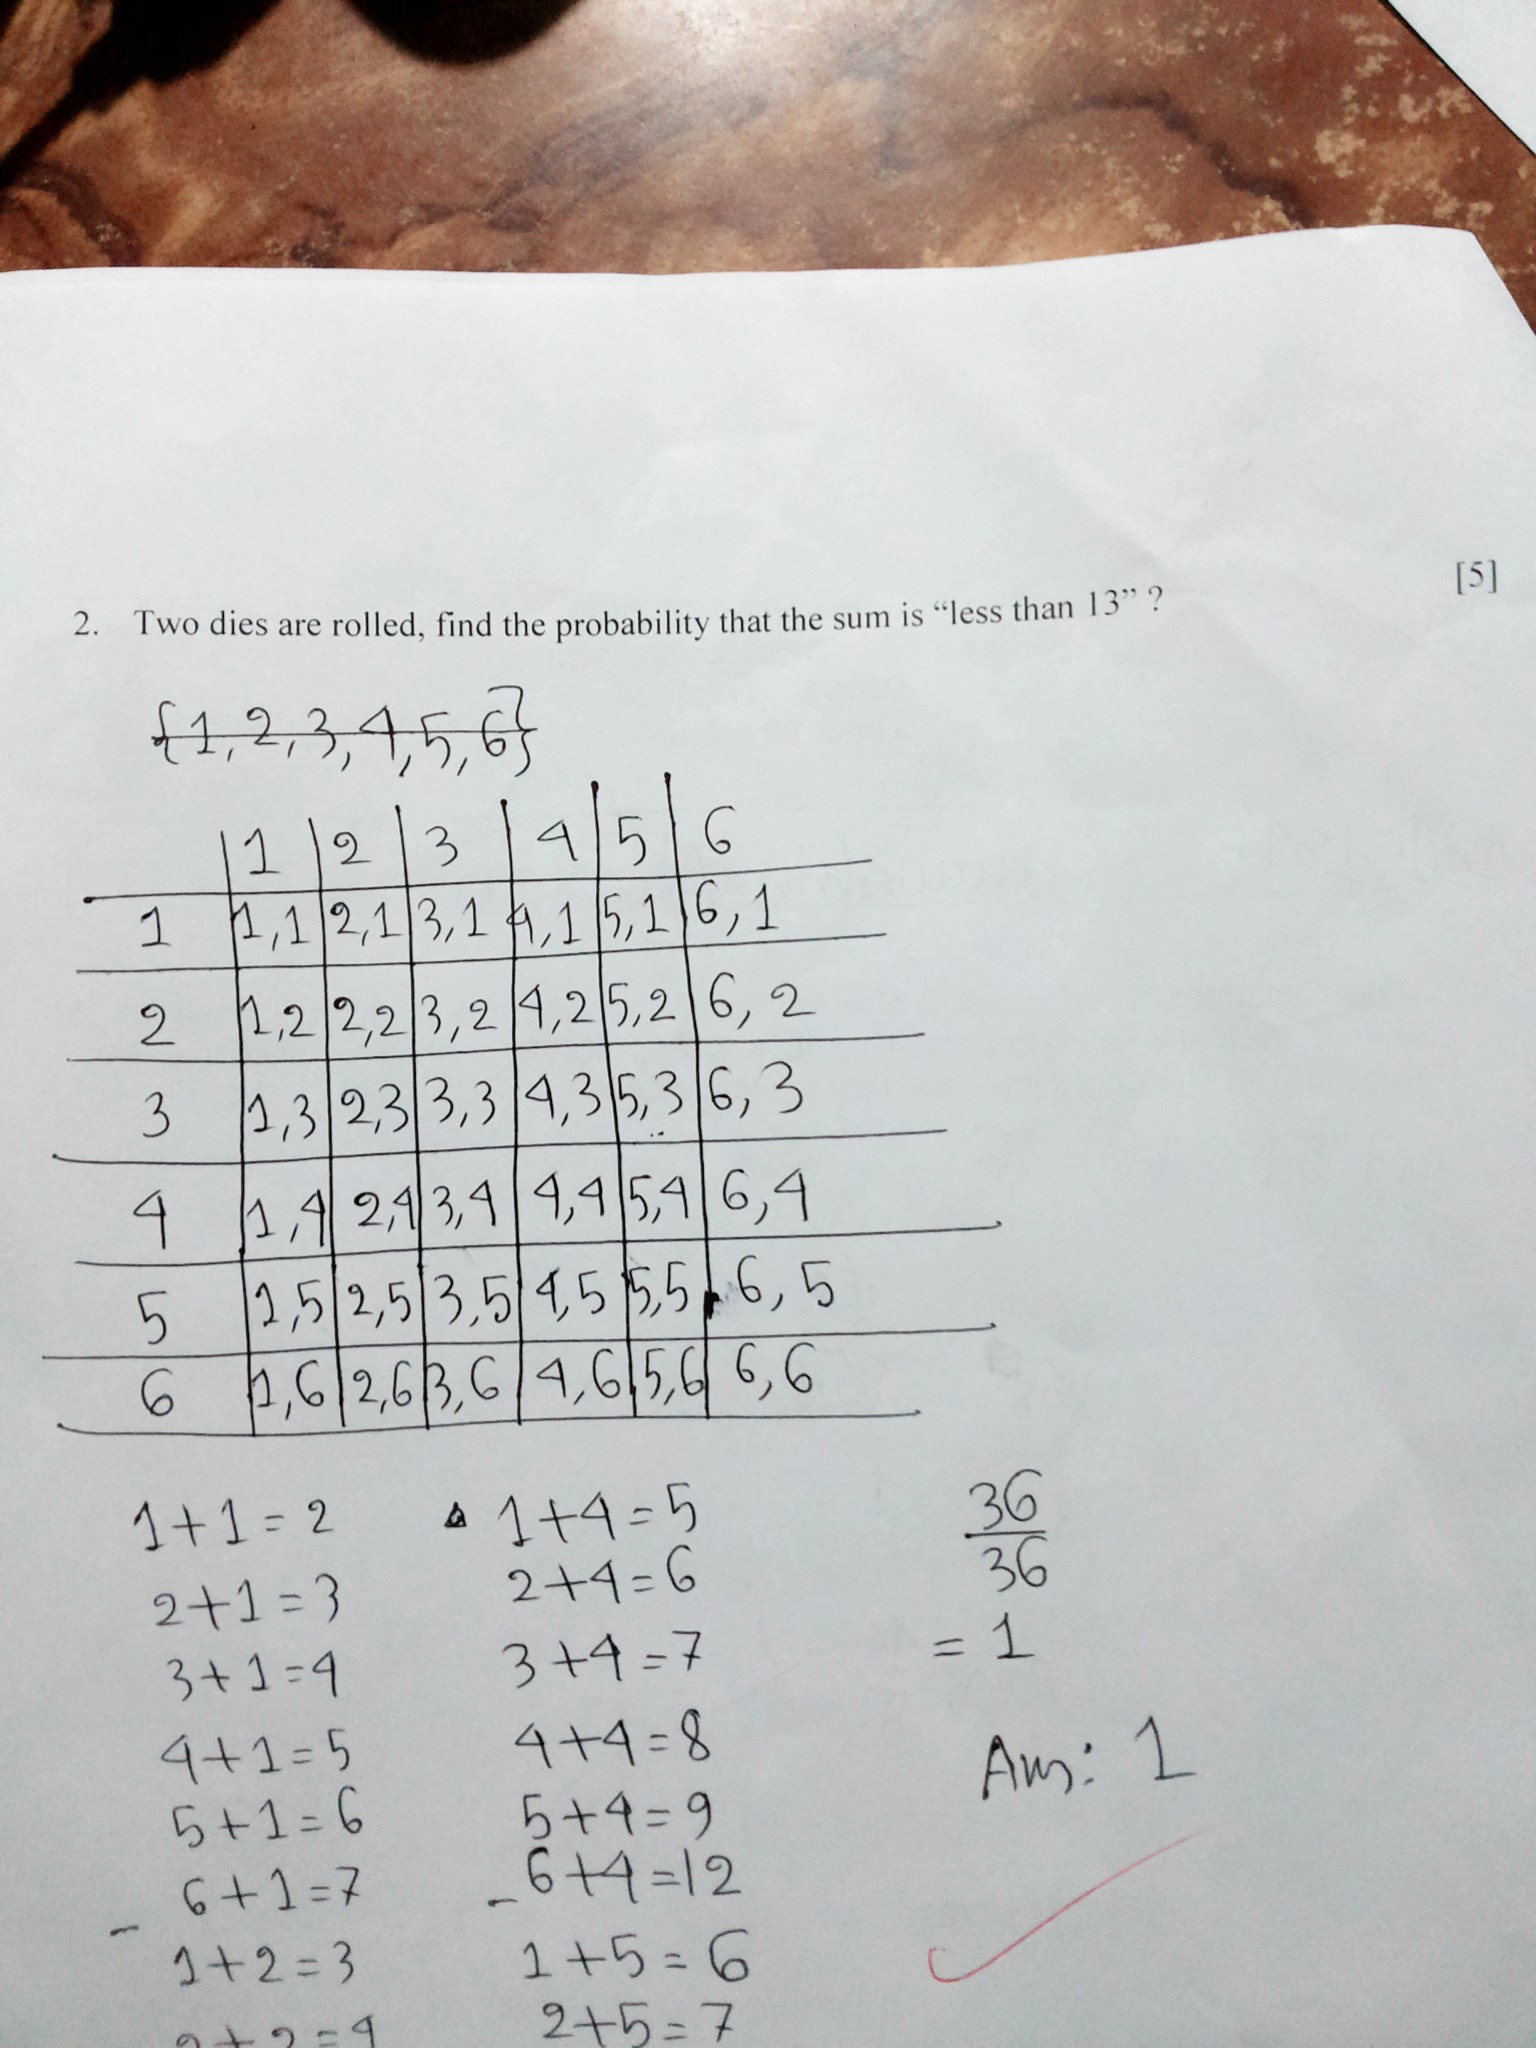 [5]
2. Two dies are rolled, find the probability that the sum is “less than 13” ?
{1,2,3,4,5,6}
1 2 3 4 5 6
1 1,1 2,1 3,1 4,1 5,1 6,1
2 1,2 2,2 3,2 4,2 5,2 6,2
3 1,3 2,3 3,3 4,3 5,3 6,3
4 1,4 2,4 3,4 4,4 5,4 6,4
5 1,5 2,5 3,5 4,5 5,5 6,5
6 1,6 2,6 3,6 4,6 5,6 6,6
1+1=2
2+1=3
3+1=4
4+1=5
5+1=6
6+1=7
1+2=3
2+2=4
1+4=5
2+4=6
3+4=7
4+4=8
5+4=9
6+4=12
1+5=6
2+5=7
36
36
= 1
Ans: 1